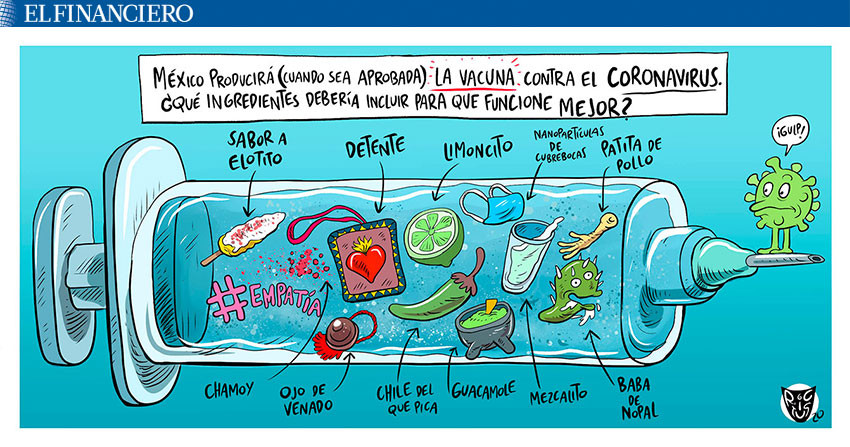 EL FINANCIERO
MÉXICO PRODUCIRÁ (CUANDO SEA APROBADA) LA VACUNA CONTRA EL CORONAVIRUS.
¿QUÉ INGREDIENTES DEBERÍA INCLUIR PARA QUE FUNCIONE MEJOR?
SABOR A
ELOTITO
DETENTE
LIMONCITO
NANOPARTÍCULAS
DE
CUBREBOCAS
PATITA DE
POLLO
¡GULP!
#EMPATÍA
CHAMOY
OJO DE
VENADO
CHILE DEL
QUE PICA
GUACAMOLE
MEZCALITO
BABA
DE
NOPAL
20